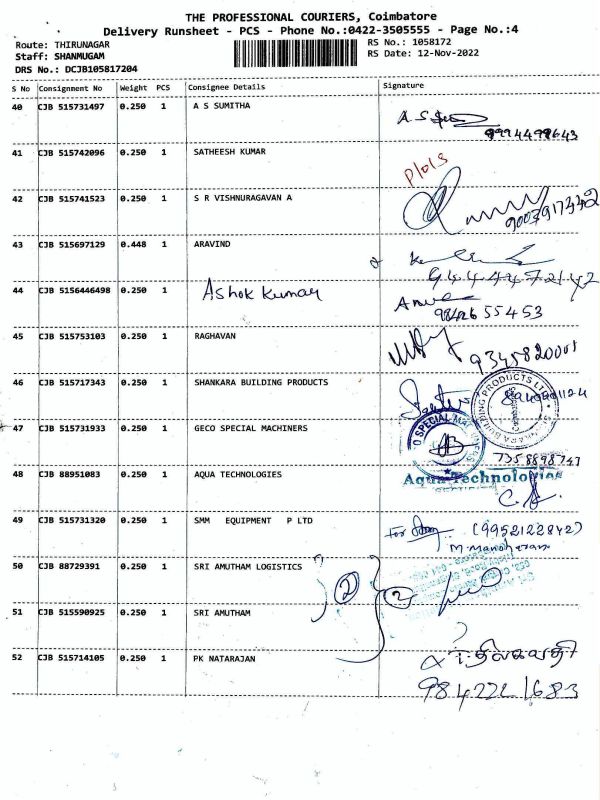 THE PROFESSIONAL COURIERS, Coimbatore
Delivery Runsheet - PCS - Phone No.:0422-3505555 - Page No.:4
Route: THIRUNAGAR
RS No.: 1058172
Staff: SHANMUGAM
RS Date: 12-Nov-2022
DRS No.: DCJB105817204
S No Consignment No Weight PCS Consignee Details Signature
40 CJB 515731497 0.250 1 A S SUMITHA
9994499643
41 CJB 515742096 0.250 1 SATHEESH KUMAR
42 CJB 515741523 0.250 1 S R VISHNURAGAVAN A
9003917342
43 CJB 515697129 0.448 1 ARAVIND
44 CJB 5156446498 0.250 1 Ashok Kumar
9842655453
45 CJB 515753103 0.250 1 RAGHAVAN
46 CJB 515717343 0.250 1 SHANKARA BUILDING PRODUCTS
47 CJB 515731933 0.250 1 GECO SPECIAL MACHINERS
7358898747
48 CJB 88951083 0.250 1 AQUA TECHNOLOGIES
Aqua Technologies
49 CJB 515731320 0.250 1 SMM EQUIPMENT P LTD
For (9952122842)
M. Manoharan
50 CJB 88729391 0.250 1 SRI AMUTHAM LOGISTICS
2 2
51 CJB 515590925 0.250 1 SRI AMUTHAM
52 CJB 515714105 0.250 1 PK NATARAJAN
திலகவதி
9842221683